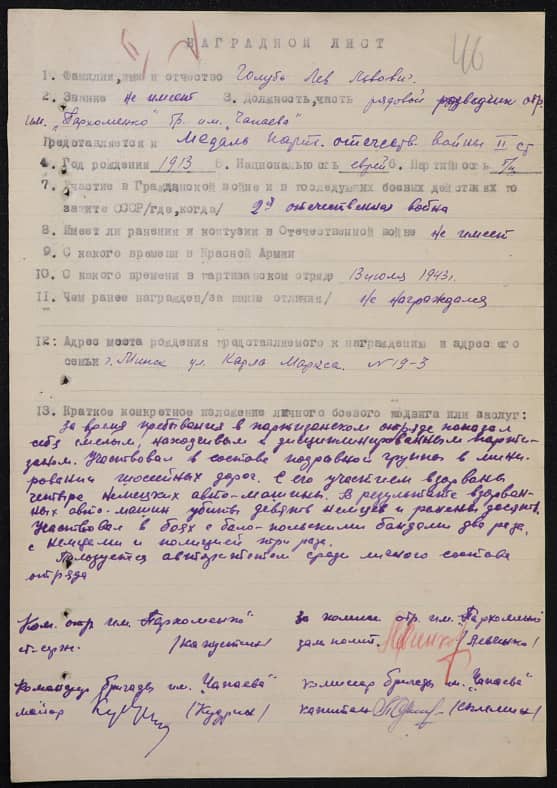 46
НАГРАДНОЙ ЛИСТ
1. Фамилия, имя и отчество Голуб Лев Львович.
2. Звание не имеет 3. Должность, часть рядовой разведчик отр.
им. "Пархоменко" бр. им. "Чапаева"
Представляется к Медаль парт. отечеств. войны II ст
4. Год рождения 1913 5. Национальность еврей 6. Партийность б/п
7. Участие в Гражданской войне и в последующих боевых действиях по
защите СССР /где, когда/ 2й отечественная война
8. Имеет ли ранения и контузии в Отечественной войне не имеет
9. С какого времени в Красной Армии
10. С какого времени в партизанском отряде 13 июля 1943г.
11. Чем ранее награжден /за какие отличия/ не награждался
12. Адрес места рождения представляемого к награждению и адрес его
семьи г. Минск ул. Карла Маркса. N 19-3
13. Краткое конкретное изложение личного боевого подвига или заслуг:
За время пребывания в партизанском отряде показал
себя смелым, находчивым и дисциплинированным парти-
заном. Участвовал в составе подрывной группы в мини-
ровании шоссейных дорог. С его участием взорваны
четыре немецких авто-машины. В результате взорван-
ных авто-машин убиты девять немцев и ранены десять.
Участвовал в боях с бело-польскими бандами два раза,
с немцами и полицией три раза.
Пользуется авторитетом среди личного состава
отряда
Ком. отр им. "Пархоменко" За комис. отр. им. "Пархоменко"
ст. серж. /Капустин/ зам полит. /Левченко/
Командир бригады им. "Чапаева" Комисар бригады им. "Чапаева"
майор /Кудрин/ капитан